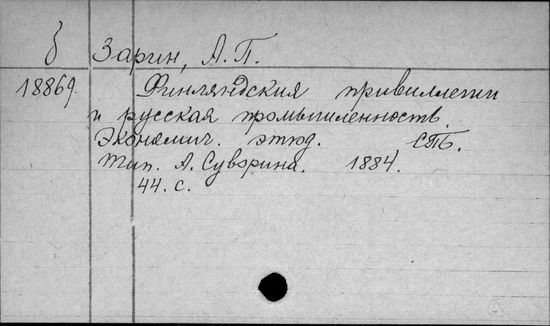 б Зарин, А. П.
18869. Финляндския привиллегии
и русская промышленность.
Экономич. этюд. СПБ.
Тип. А. Суворина. 1884.
44. с.